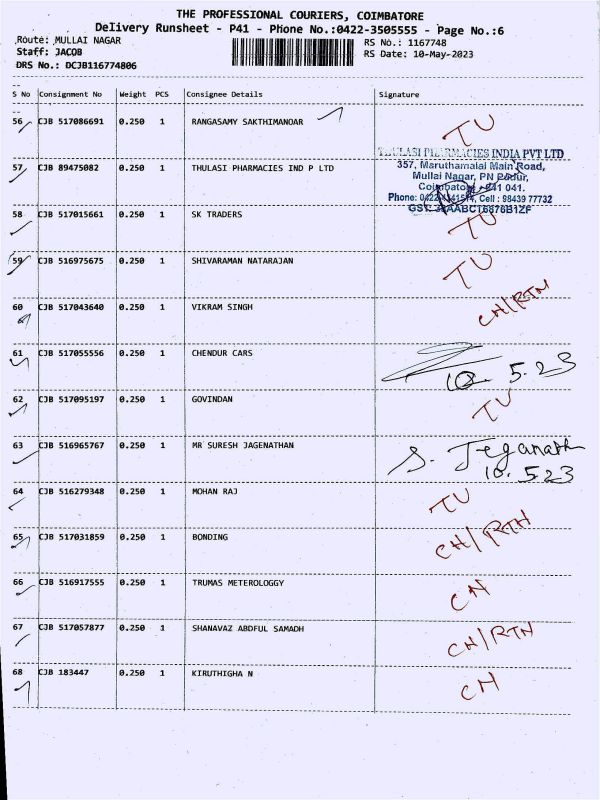 THE PROFESSIONAL COURIERS, COIMBATORE
Delivery Runsheet - P41 - Phone No.:0422-3505555 - Page No.:6
Route: MULLAI NAGAR
RS No.: 1167748
Staff: JACOB
RS Date: 10-May-2023
DRS No.: DCJB116774806
S No Consignment No Weight PCS Consignee Details Signature
56 CJB 517086691 0.250 1 RANGASAMY SAKTHIMANOAR TU
THULASI PHARMACIES INDIA PVT LTD
357, Maruthamalai Main Road,
57 CJB 89475082 0.250 1 THULASI PHARMACIES IND P LTD
Mullai Nagar, PN Pudur,
Coimbatore - 641 041.
Phone: Cell : 98439 77732
58 CJB 517015661 0.250 1 SK TRADERS TU
59 CJB 516975675 0.250 1 SHIVARAMAN NATARAJAN TU
60 CJB 517043640 0.250 1 VIKRAM SINGH CH/RTN
61 CJB 517055556 0.250 1 CHENDUR CARS
10. 5.23
62 CJB 517095197 0.250 1 GOVINDAN TU
63 CJB 516965767 0.250 1 MR SURESH JAGENATHAN S. Jeganath
10.523
64 CJB 516279348 0.250 1 MOHAN RAJ TU
65 CJB 517031859 0.250 1 BONDING CH/RTH
66 CJB 516917555 0.250 1 TRUMAS METEROLOGGY CN
67 CJB 517057877 0.250 1 SHANAVAZ ABDFUL SAMADH CH/RTN
68 CJB 183447 0.250 1 KIRUTHIGHA N CN